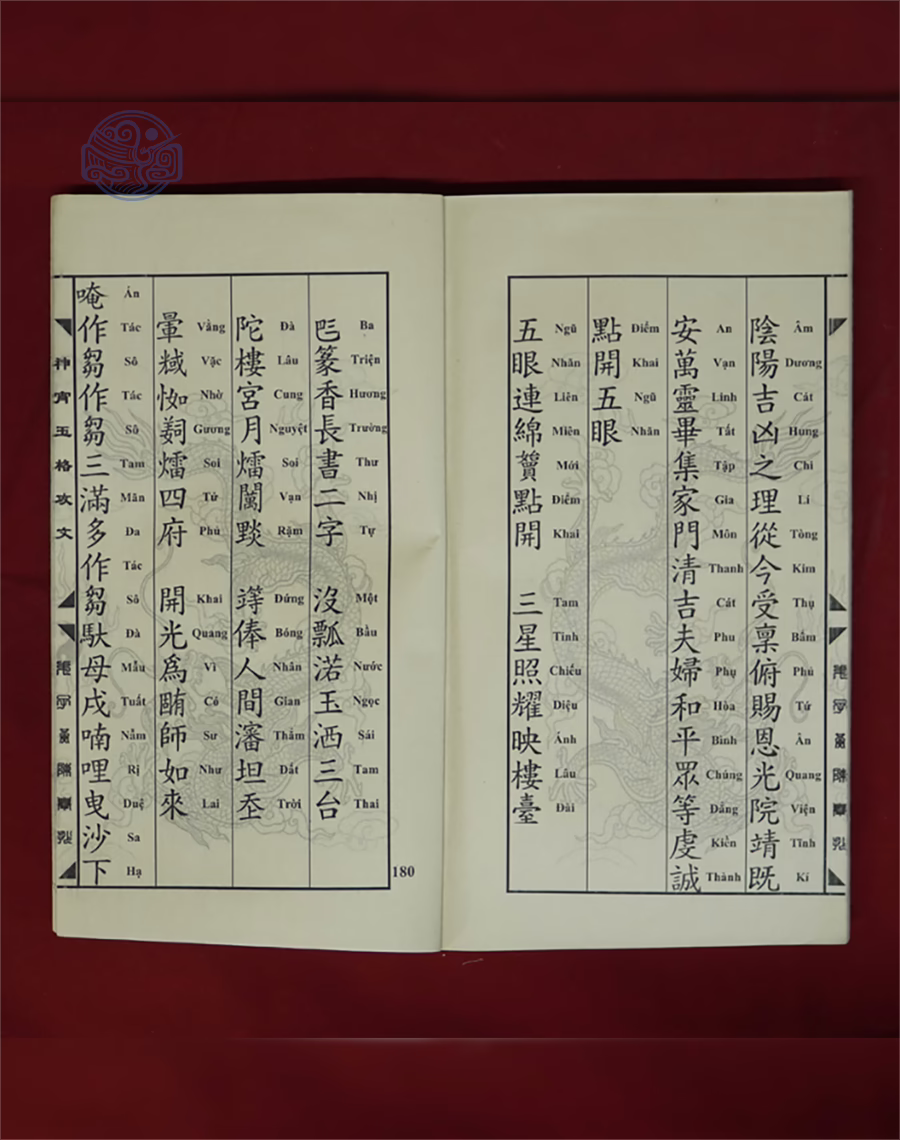 陰陽吉凶之理從今受稟俯賜恩光院靖既
Âm Dương Cát Hung Chi Lí Tòng Kim Thụ Bẩm Phủ Tứ Ân Quang Viện Tĩnh Kí
安萬靈畢集家門清吉夫婦和平眾等虔誠
An Vạn Linh Tất Tập Gia Môn Thanh Cát Phu Phụ Hòa Bình Chúng Đẳng Kiền Thành
點開五眼
Điểm Khai Ngũ Nhãn
五眼連綿點開 三星照耀映樓臺
Ngũ Nhãn Liên Miên Mới Điểm Khai Tam Tinh Chiếu Diệu Ánh Lâu Đài
篆香長書二字 沒瓢渃玉洒三台
Ba Triện Hương Trường Thư Nhị Tự Một Bầu Nước Ngọc Sái Tam Thai
陀樓宮月 俸人間瀋坦
Đà Lâu Cung Nguyệt Soi Vạn Rặm Đứng Bóng Nhân Gian Thẳm Đất Trời
暈四府 開光爲師如來
Vầng Vặc Nhờ Gương Soi Tứ Phủ Khai Quang Vì Có Sư Như Lai
唵作芻作芻三滿多作芻馱母戌喃哩曳沙下
Án Tác Sô Tác Sô Tam Mãn Đa Tác Sô Đà Mẫu Tuất Nẳm Rị Duệ Sa Hạ
神宵玉格攻文
180